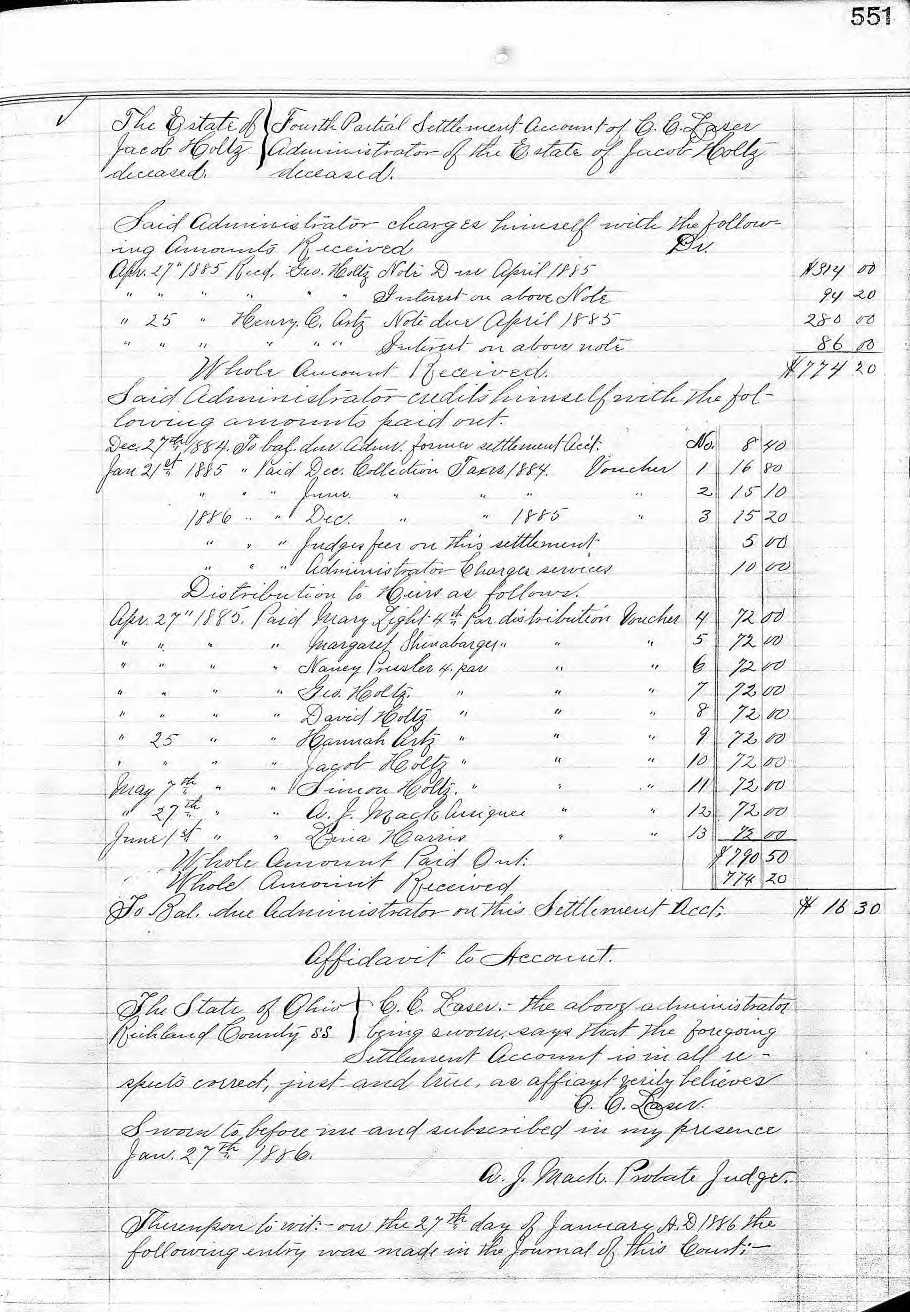 551
The Estate of } Fourth Partial Settlement Account of C. C. Laser
Jacob Holtz } Administrator of the Estate of Jacob Holtz
deceased. deceased.
Said Administrator charges himself with the follow-
ing Amounts Received Dr.
Apr. 27" 1885 Recd. Geo. Holtz Note Due April 1885 $314 00
" " " " " " Interest on above Note 94 20
" 25 " Henry C. Artz Note due April 1885 280 00
" " " " " " Interest on above note 86 00
Whole Amount Received. $774 20
Said Administrator credits himself with the fol-
lowing amounts paid out.
Dec. 27th 1884. To bal. due Admr. former settlement Acct. No. 8 40
Jan 21st 1885 " Paid Dec. Collection Taxes 1884. Voucher 1 16 80
" " " June " " " " 2 15 10
1886 " " Dec. " " 1885 " 3 15 20
" " " Judges fees on this settlement 5 00
" " " Administrator Charges services 10 00
Distribution to Heirs as follows.
Apr. 27" 1885. Paid Mary Light 4th Par. distribution Voucher 4 72 00
" " " " Margaret Shinabarger " " " 5 72 00
" " " " Nancy Pressler 4. par " " 6 72 00
" " " " Geo. Holtz. " " " 7 72 00
" " " " David Holtz " " " 8 72 00
" 25 " " Hannah Artz " " " 9 72 00
" " " " Jacob Holtz " " " 10 72 00
May 7th " " Simon Holtz. " " " 11 72 00
" 27th " " A. J. Mack Assignee " " 12 72 00
June 1st " " Harris " " 13 72 00
Whole Amount Paid Out: $790 50
Whole Amount Received 774 20
To Bal. due Administrator on this Settlement Acct; $ 16 30
Affidavit to Account.
The State of Ohio } C. C. Laser.- the above administrator
Richland County SS } being sworn, says that the foregoing
Settlement Account is in all re-
spects correct, just and true, as affiant verily believes
C. C. Laser.
Sworn to before me and subscribed in my presence
Jan. 27th 1886.
A. J. Mack Probate Judge.
Thereupon to wit:- on the 27th day of January A.D 1886 the
following entry was made in the Journal of this Court:-